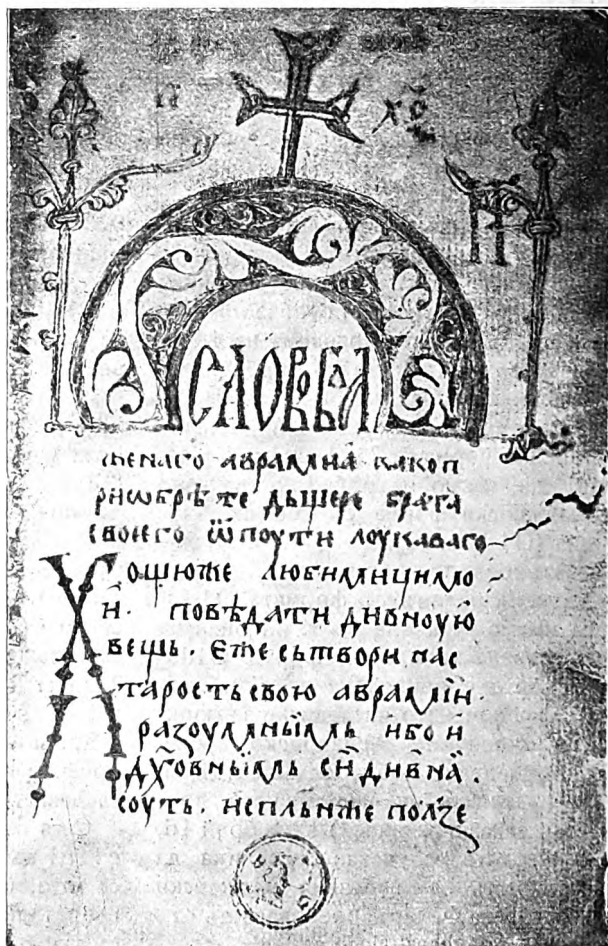 СЛОВОБЛА
женаго авраміа како п
риѡбрѣте дьщере брата
своего ѿпоути лоукаваго
Хощюже любимицимо
и. повѣдати дивноую
вещь. Еже сьтвори нас
тарость свою авраміи.
разоумныимь ибо и
дх҃овныимь сиі дивна.
соуть. испльнже полꙁе